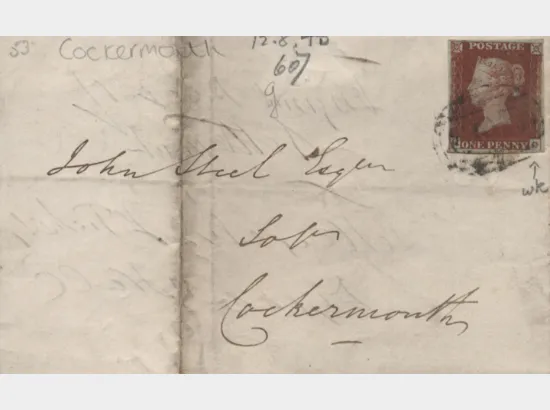 53 Cockermouth
12.8.70
607
POSTAGE
ONE PENNY
wk
John Steel Esqr
Cockermouth